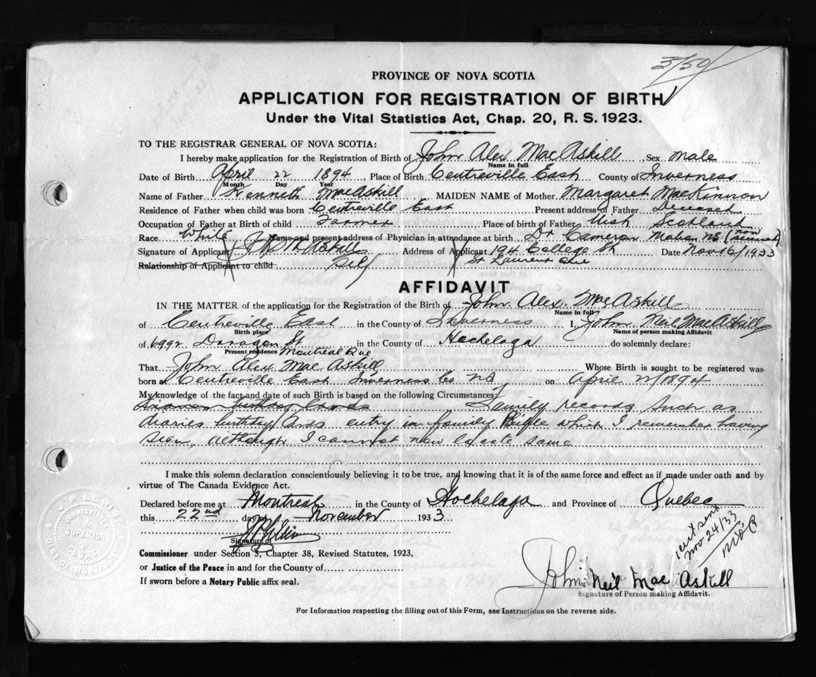 3/50
PROVINCE OF NOVA SCOTIA
APPLICATION FOR REGISTRATION OF BIRTH
Under the Vital Statistics Act, Chap. 20, R. S. 1923.
TO THE REGISTRAR GENERAL OF NOVA SCOTIA:
I hereby make application for the Registration of Birth of John Alex MacAskill Sex male
Name in full
Date of Birth April 22 1894 Place of Birth Centreville East County of Inverness
Month Day Year
Name of Father Kenneth MacAskill MAIDEN NAME of Mother Margaret MacKinnon
Residence of Father when child was born Centreville East Present address of Father Deceased
Occupation of Father at Birth of child Farmer Place of birth of Father Uist Scotland
Race White Name and present address of Physician in attendance at birth Dr Cameron Mabou NS (now deceased)
Signature of Applicant MacAskill Address of Applicant 194 College St Date Nov 16/1933
Relationship of Applicant to child Self St Laurent Que
AFFIDAVIT
IN THE MATTER of the application for the Registration of the Birth of John Alex MacAskill
Name in full
of Centreville East in the County of Inverness I, John Neil MacAskill
Birth place Name of person making affidavit
of 6992 St in the County of Hochelaga do solemnly declare:
Present residence Montreal Que
That John Alex MacAskill Whose Birth is sought to be registered was
born at Centreville East Inverness Co NS on April 22/1894
My knowledge of the fact and date of such Birth is based on the following Circumstances
Family records such as
diaries birthday cards entry in family Bible which I remember having
seen, although I cannot now locate same
I make this solemn declaration conscientiously believing it to be true, and knowing that it is of the same force and effect as if made under oath and by
virtue of The Canada Evidence Act.
Declared before me at Montreal in the County of Hochelaga and Province of Quebec
this 22nd day of November 1933
Signature of
Commissioner under Section 5, Chapter 38, Revised Statutes, 1923,
or Justice of the Peace in and for the County of
If sworn before a Notary Public affix seal.
Cert sent
Nov 24/33
John Neil MacAskill
Signature of Person making Affidavit.
For Information respecting the filling out of this Form, see Instructions on the reverse side.